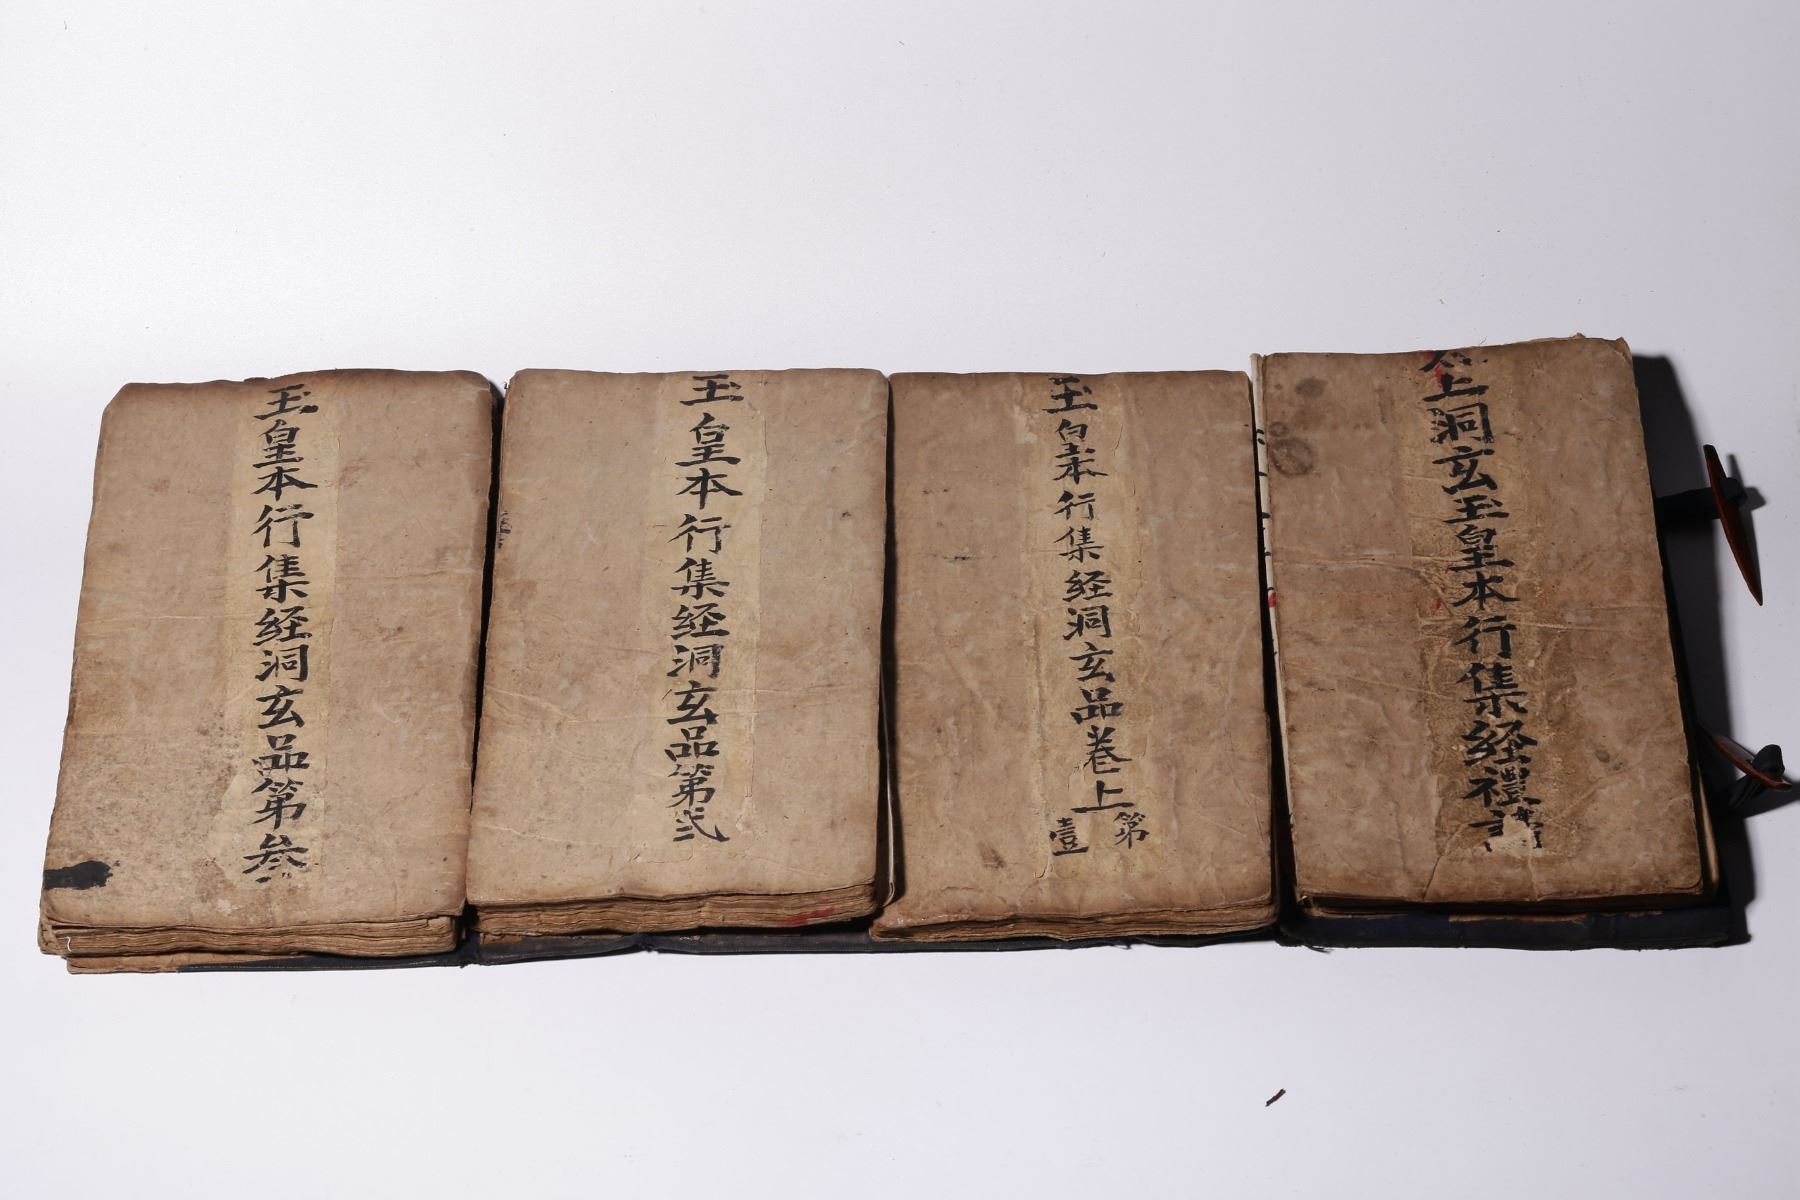 太上洞玄玉皇本行集经禮請
玉皇本行集经洞玄品卷上
第
壹
玉皇本行集经洞玄品第弍
玉皇本行集经洞玄品第叁